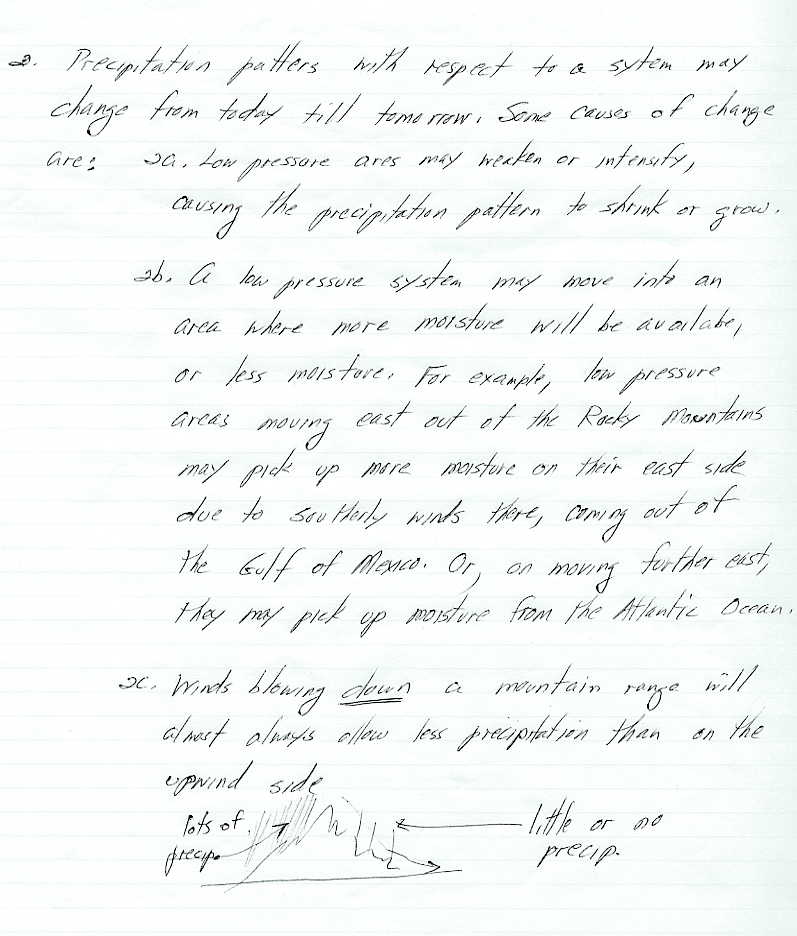 2. Precipitation patters with respect to a sytem may
change from today till tomorrow. Some causes of change
are: 2a. Low pressure ares may weaken or intensify,
causing the precipitation pattern to shrink or grow.
2b. A low pressure system may move into an
area where more moisture will be availabe,
or less moisture. For example, low pressure
areas moving east out of the Rocky Mountains
may pick up more moisture on their east side
due to southerly winds there, coming out of
the Gulf of Mexico. Or, on moving further east,
they may pick up moisture from the Atlantic Ocean.
2c. Winds blowing down a mountain range will
almost always allow less precipitation than on the
upwind side
lots of
precip.
little or no
precip.